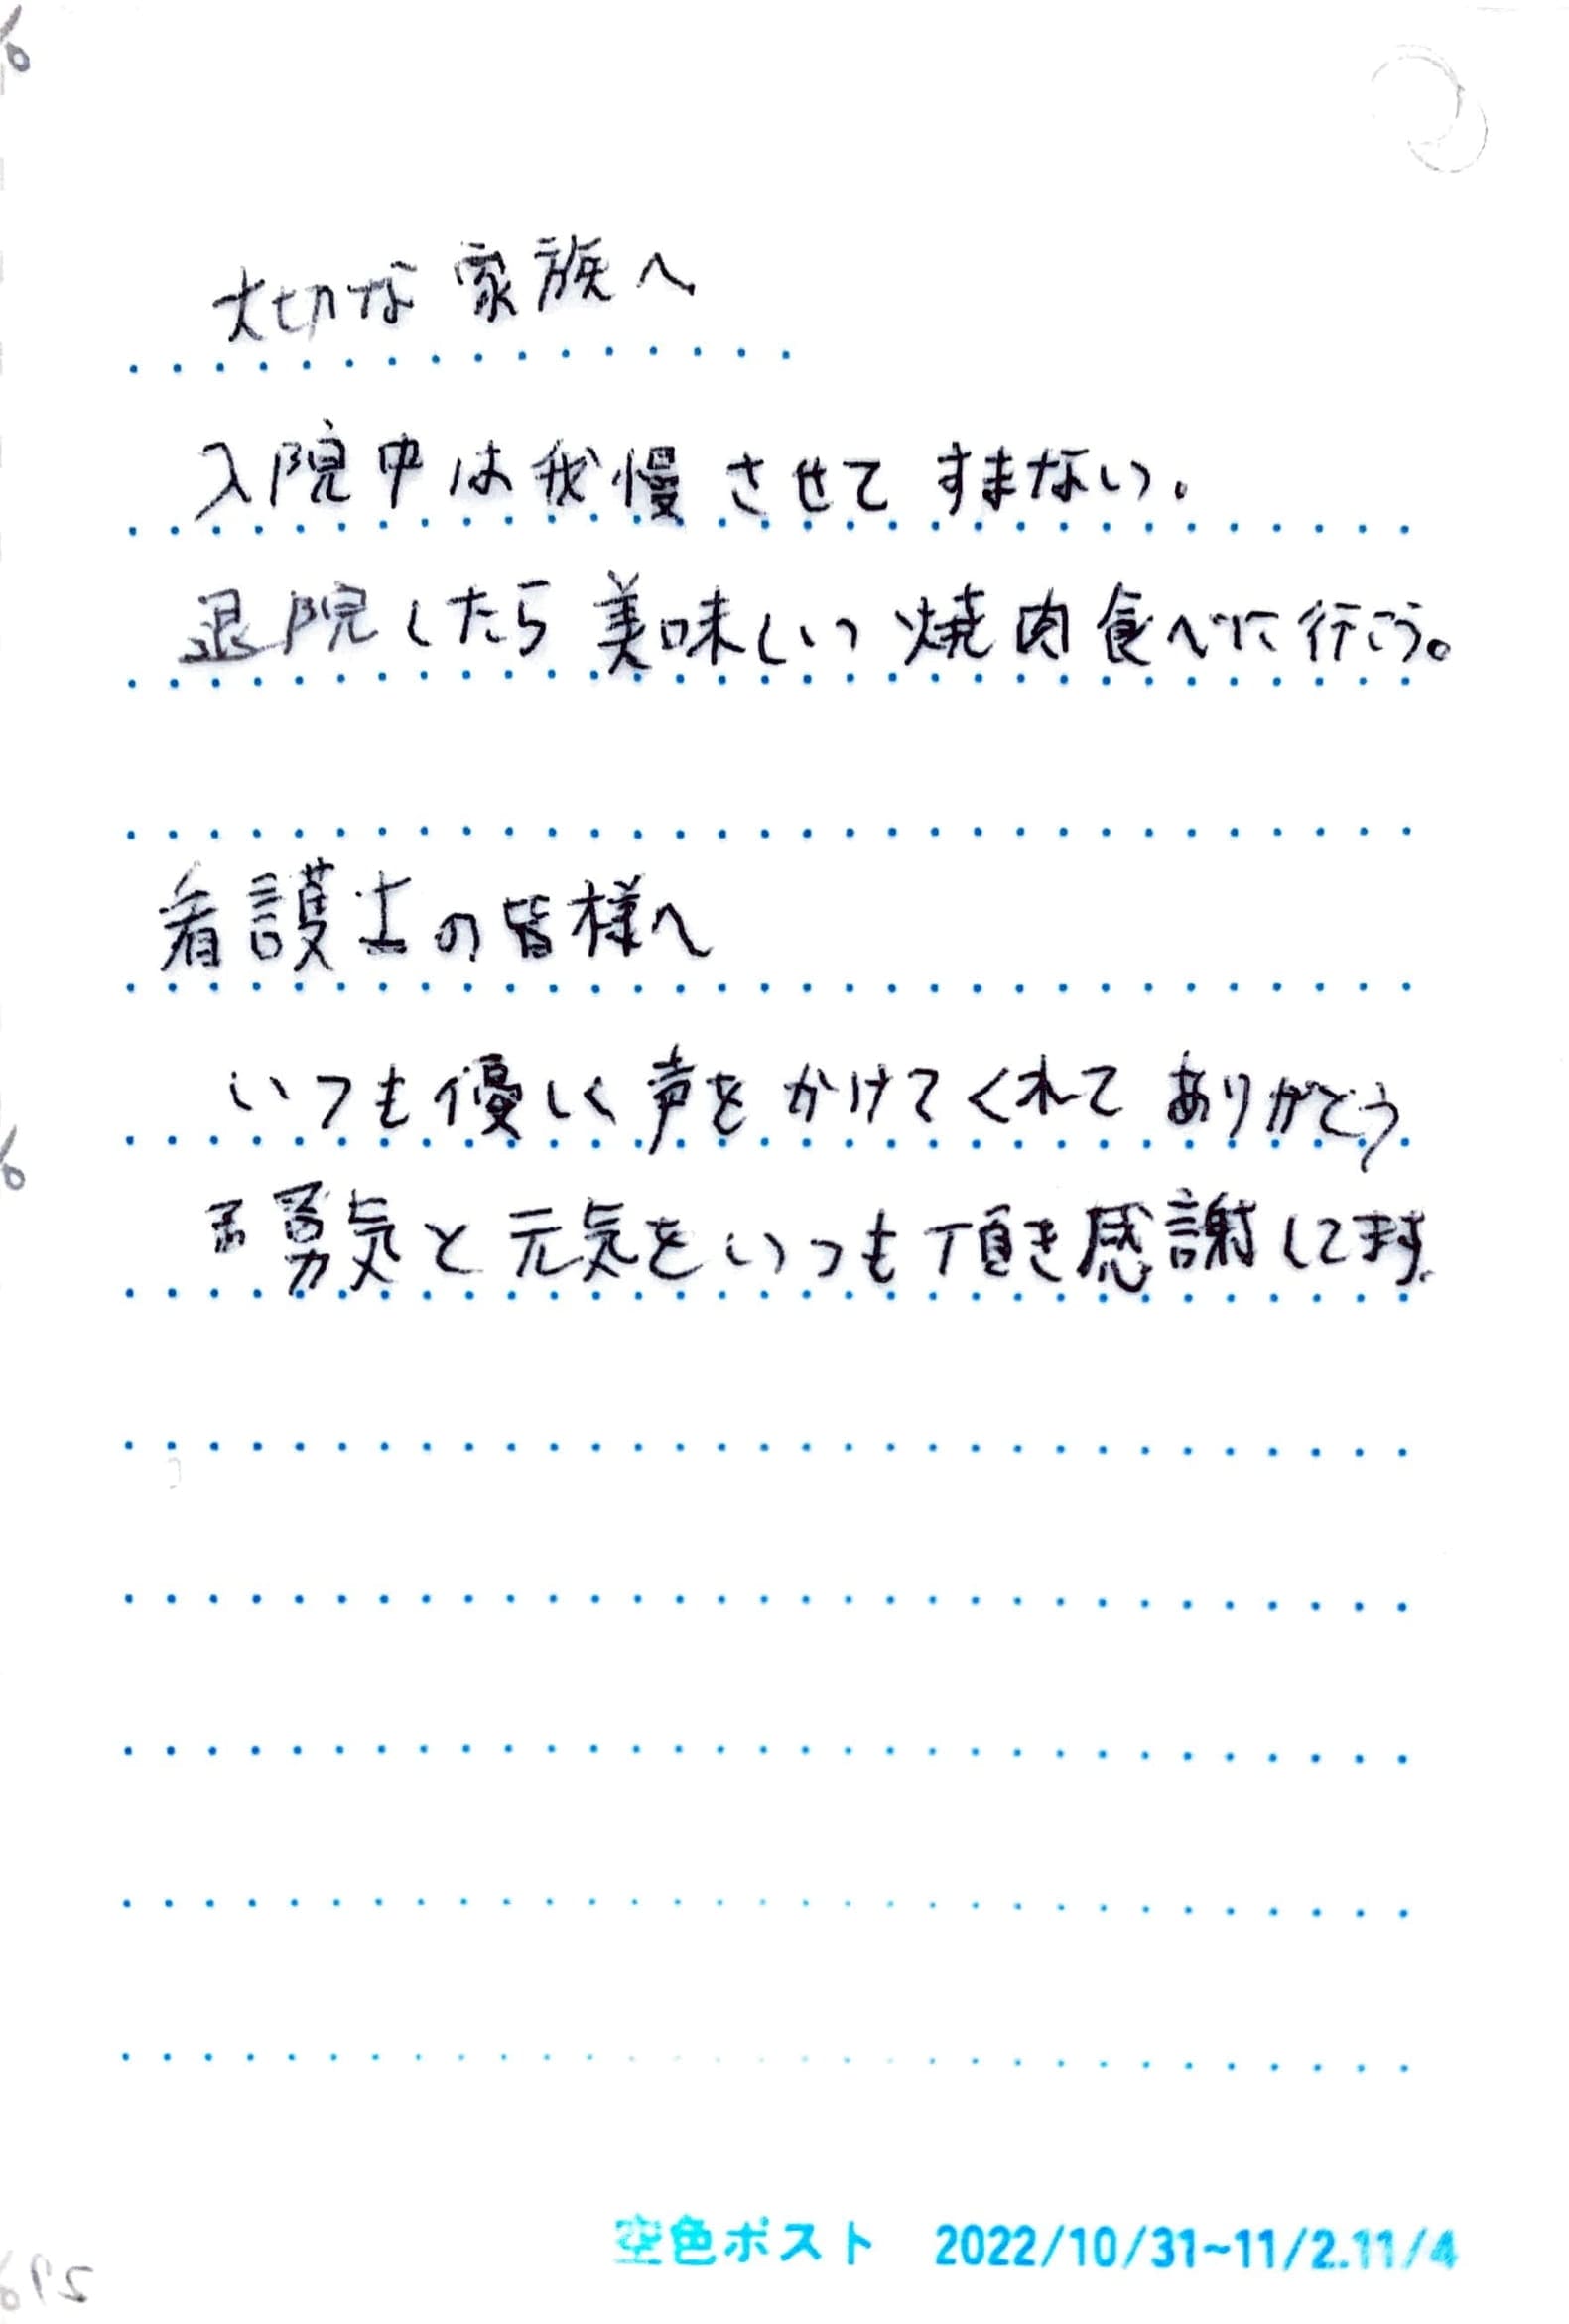 大切な家族へ
入院中は我慢させてすまない。
退院したら美味しい焼肉食べに行こう。
看護士の皆様へ
いつも優しく声をかけてくれてありがとう
勇気と元気をいつも頂き感謝してます。
空色ポスト 2022/10/31~11/2.11/4